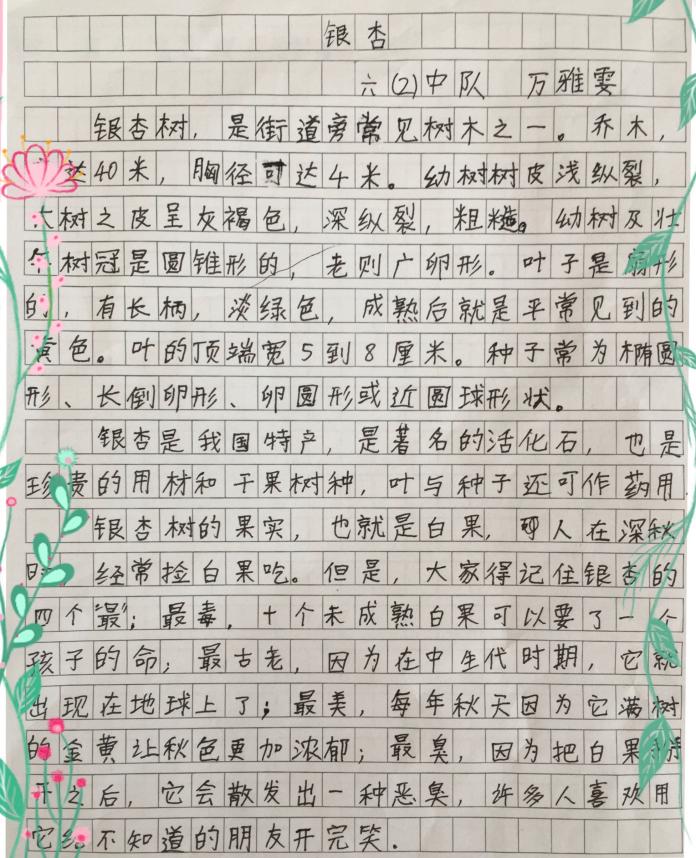 银杏
六(2)中队 万雅雯
银杏树，是街道旁常见树木之一。乔木，
达40米，胸径可达4米。幼树树皮浅纵裂，
大树之皮呈灰褐色，深纵裂，粗糙。幼树及壮
年树冠是圆锥形的，老则广卵形。叶子是扇形
的，有长柄，淡绿色，成熟后就是平常见到的
黄色。叶的顶端宽5到8厘米。种子常为椭圆
形、长倒卵形、卵圆形或近圆球形状。
银杏是我国特产，是著名的活化石，也是
珍贵的用材和干果树种，叶与种子还可作药用
银杏树的果实，也就是白果，人在深秋
时，经常捡白果吃。但是，大家得记住银杏的
四个“最”；最毒，十个未成熟白果可以要了一个
孩子的命；最古老，因为在中生代时期，它就
出现在地球上了；最美，每年秋天因为它满树
的金黄让秋色更加浓郁；最臭，因为把白果
开之后，它会散发出一种恶臭，许多人喜欢用
它给不知道的朋友开完笑.